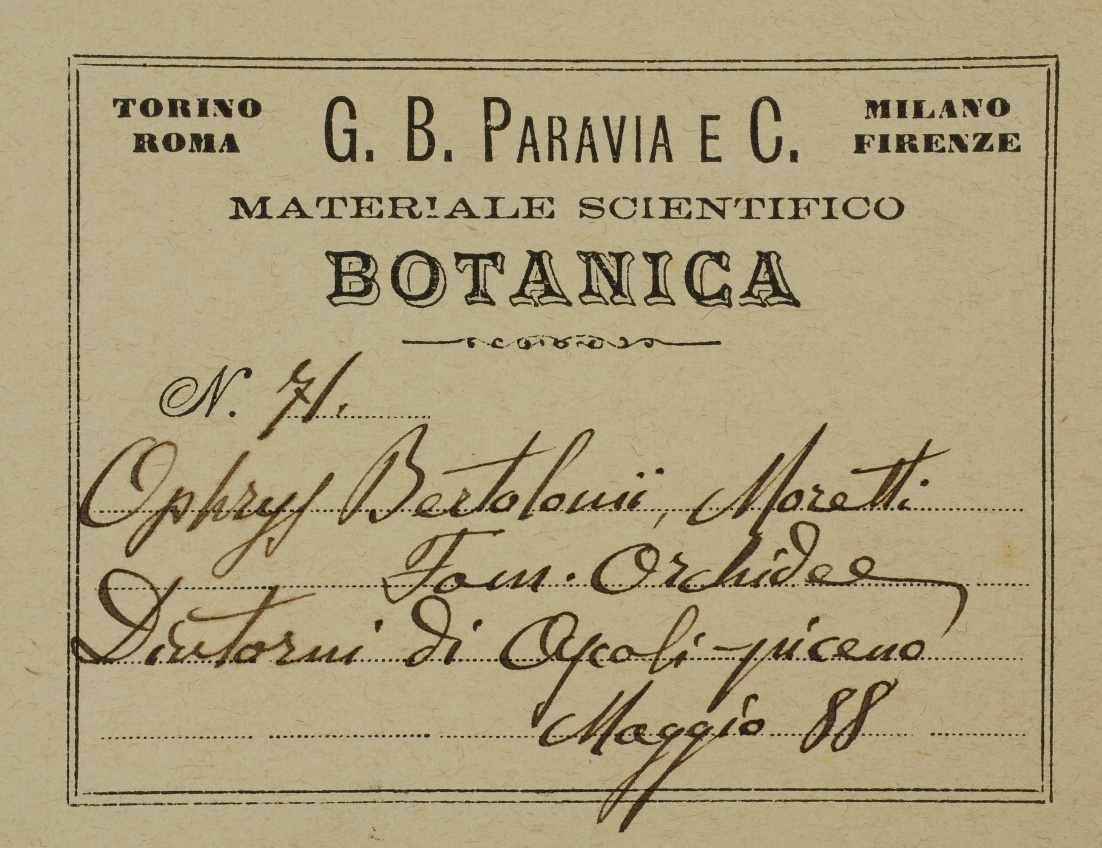 TORINO G. B. PARAVIA E C. MILANO
ROMA FIRENZE
MATERIALE SCIENTIFICO
BOTANICA
N. 71.
Ophrys Bertolonii, Moretti
Fam. Orchidee
Dintorni di Ascoli-piceno
Maggio 88